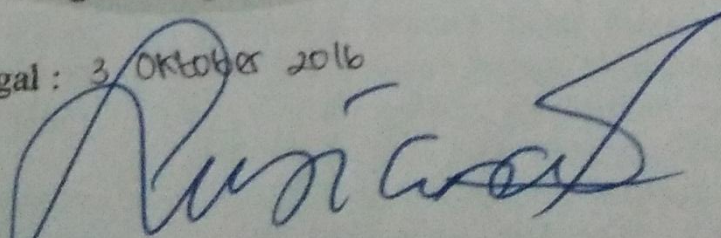 gal : 3 Oktober 2016